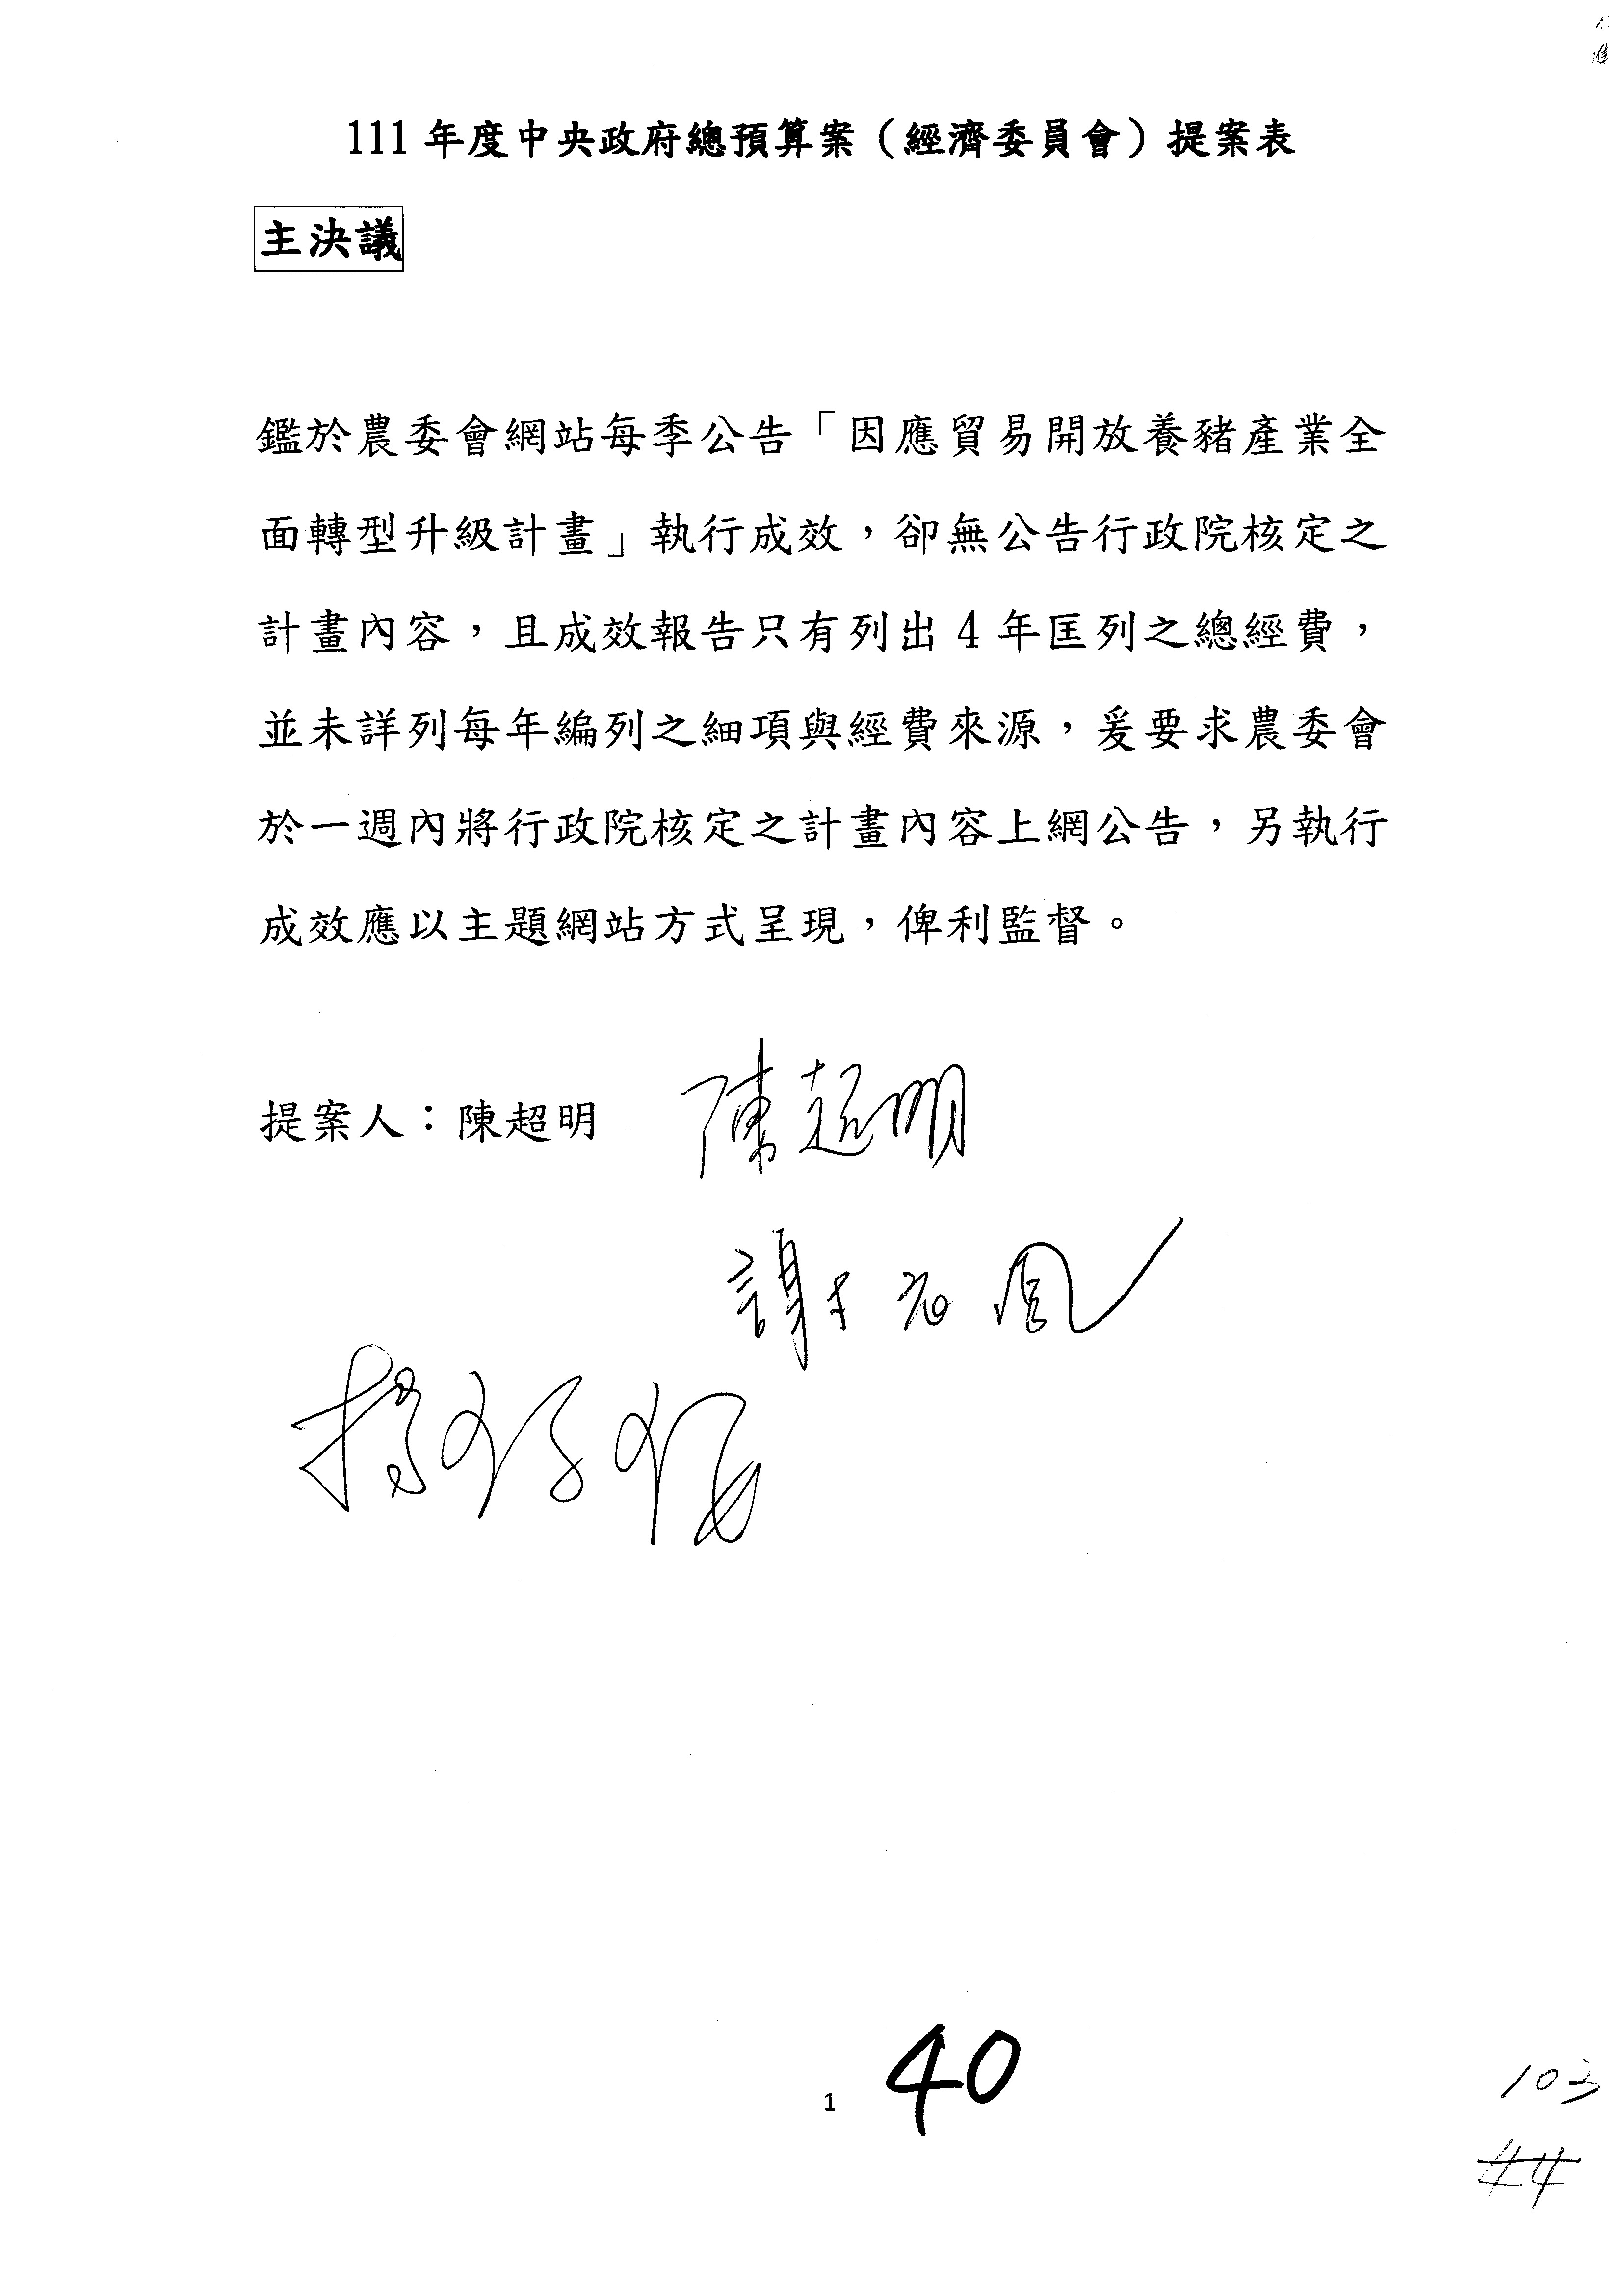 111 年度中央政府總預算案（經濟委員會）提案表
主決議
鑑於農委會網站每季公告「因應貿易開放養豬產業全
面轉型升級計畫」執行成效，卻無公告行政院核定之
計畫內容，且成效報告只有列出 4 年匡列之總經費，
並未詳列每年編列之細項與經費來源，爰要求農委會
於一週內將行政院核定之計畫內容上網公告，另執行
成效應以主題網站方式呈現，俾利監督。
提案人：陳超明 陳超明
謝衣鳯
楊瓊瓔
1 40
103
44